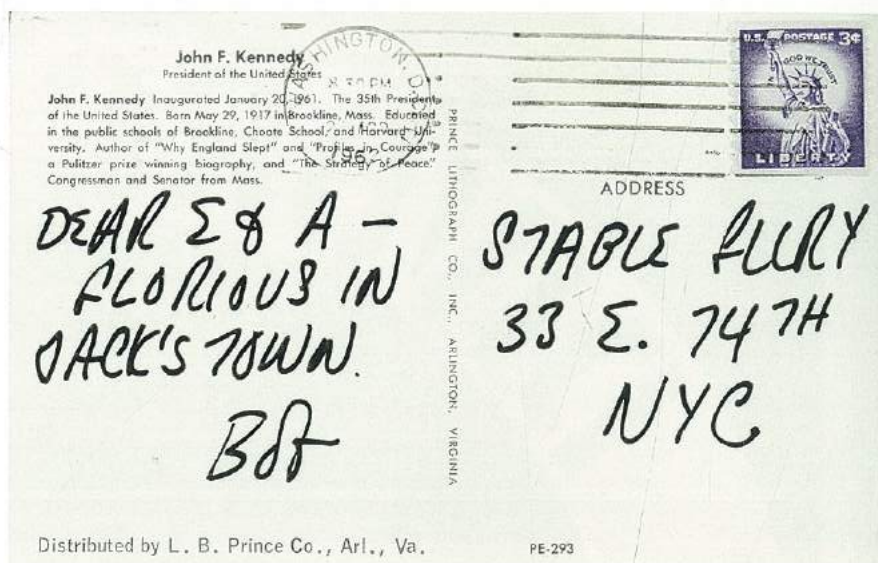 John F. Kennedy
President of the United States
John F. Kennedy Inaugurated January 20, 1961. The 35th President
of the United States. Born May 29, 1917 in Brookline, Mass. Educated
in the public schools of Brookline, Choate School, and Harvard Uni-
versity. Author of "Why England Slept" and "Profiles in Courage"
a Pulitzer prize winning biography, and "The Strategy of Peace."
Congressman and Senator from Mass.
WASHINGTON, D.
PM
U.S. POSTAGE 3¢
IN GOD WE TRUST
LIBERTY
DEAR E & A –
GLORIOUS IN
JACK'S TOWN.
Bob
PRINCE LITHOGRAPH CO., INC., ARLINGTON, VIRGINIA
ADDRESS
STABLE GLLRY
33 E. 74TH
NYC
Distributed by L. B. Prince Co., Arl., Va.
PE-293